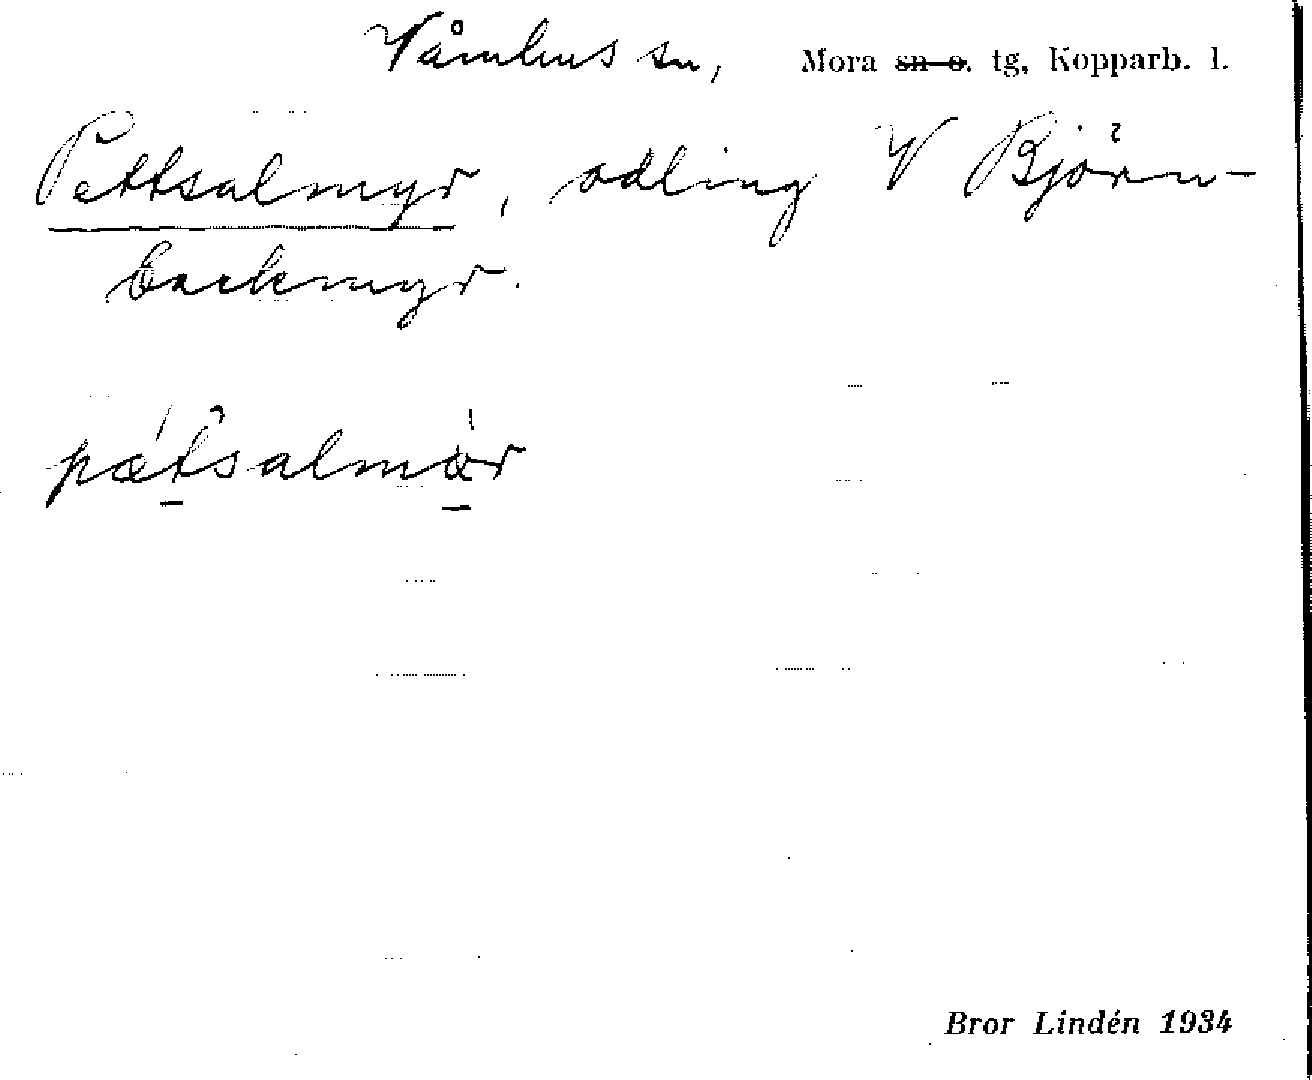 Våmhus sn, Mora sn o. tg, Kopparb. l.
Pettsalmyr, odling V Björn-
backmyr.
pætsalmör
Bror Lindén 1934